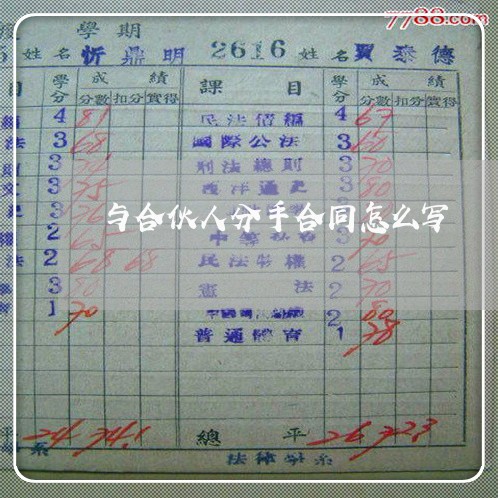 7788.com
學期
姓名 忻鼎明 2616 姓名 賈泰德
目 學分 成績 課目 學分 成績
分數 扣分 實得 分數 扣分 實得
4 81 民法債編 4 67
法 3 68 國際公法 3 60
3 刑法總則 3 70
3 75 西洋通史 3 80
3
与合伙人分手合同怎么写
2 65 3 70
法 2 68 68 民法物權 2 65
3 80 憲法 2 70
1 70 2 80
普通體育 1 78
平 24 74.1 總平 26 72.3
系 法律學系